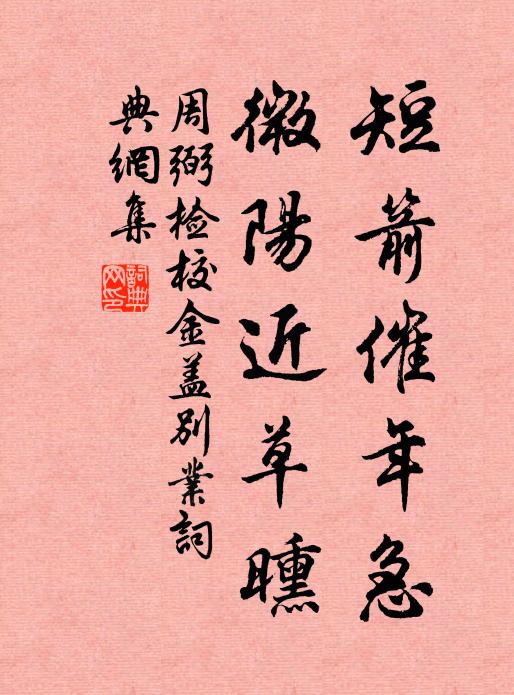 短箭催年急
微陽近草曛
周弼检校金盖别業詞
典網集
詞典网印